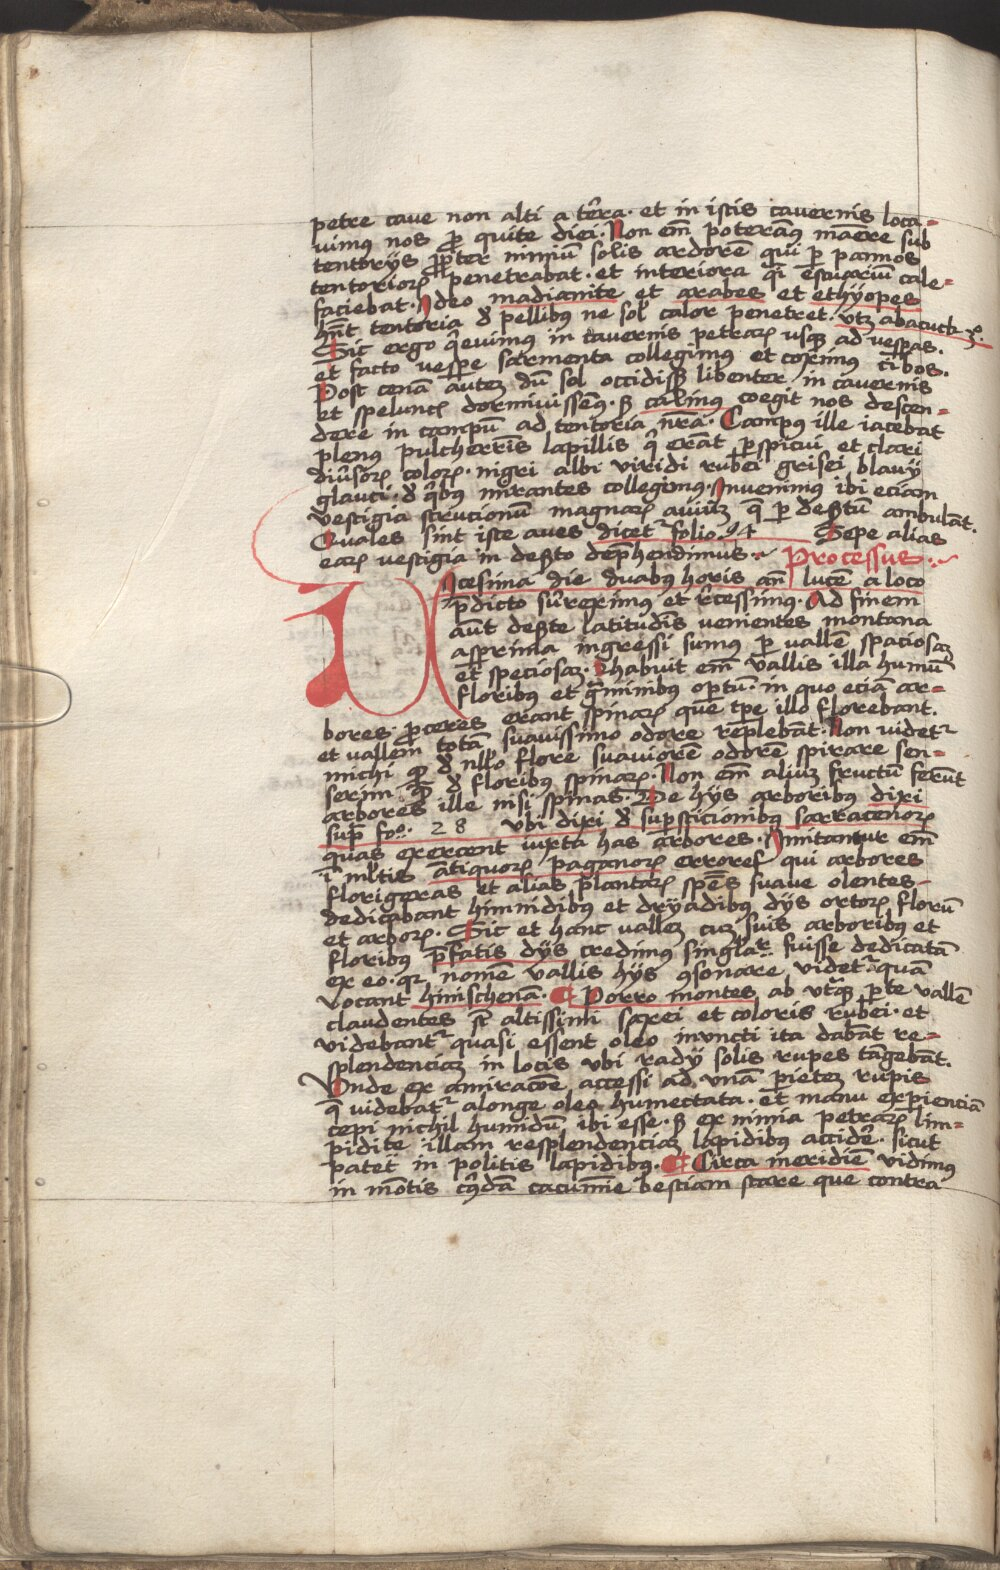 petre cave non alti a terra · et in istis cavernis loca=
vimus nos pro quite diei · Non em̄ poteramꝰ manere sub
tentorijs propter nimiū solis ardorē qui per pannos
tentorioꝝ penetrabat · et interiora q̄i estuariū cale=
faciebat · Ideo madianite et arabes et ethyopes
hn̄t tentoria de pellibus ne sol' calor penetret · vtꝫ abacuck 3º.
Sic ergo q̄evimus in cavernis petraꝝ usqꝫ ad vesperas.
et facto vespere sarmenta collegimus et coximus cibos.
Post cenam autem dū sol occidisset libenter in cavernis
et speluncis dormivissemꝰ · sꝫ calinus coegit nos descen=
dere in campū ad tentoria nr̄a · Campus ille iacebat
plenus pulcherrīs lapillis q̄ erāt perspicui et clari
diūsoꝝ coloꝝ · nigri albi viridi rubei grisei blavij
glauci · de q̄bus mirantes collegimus · Invenimus ibi eciam
vestigia strucionū magnaꝝ aviū q̄ per desertum ambulāt.
Quales sint iste aves dicet² folio · 94 Sepe alias
eaꝝ vestigia in deserto dephendimus · Processus ·
Vicesima die duabꝰ horis an̄ lucē a loco
p̄dicto surreximus et rēcessimꝰ · Ad finem
aūt deserte latitudīs venientes montana
asperrima ingressi sumus per vallē spaciosaꝫ
et speciosaꝫ · habuit em̄ vallis illa humū
floribus et graminibus opertū · in quo eciā ar=
bores proceres erant spinaꝝ que tp̄e illo florebant.
et vallem totā suavissimo odore replebāt · Non videt²
michi qꝫ de nllo flore suaviorē odorē spirare sen=
serim qꝫ de floribus spinaꝝ · Non em̄ aliuꝫ fructū ferūt
arbores ille nisi spinas · De hijs arboribus dixi
supra foº. 28 vbi dixi de supersticionibꝰ sarracenoꝝ
quas exercent iuxta has arbores · Imitantur em̄
ī mltis antiquoꝝ paganoꝝ errores qui arbores
florigeras et alias plantaꝝ spēs suave olentes
dedicabant himnidibus et dryadibus dijs ortoꝝ florū
et arboꝝ · Sic et hanc valleꝫ cuꝫ suis arboribus et
floribus p̄fatis dijs credimus singlar̄ fuisse dedicatā
ex eo · qꝛ nomē vallis hijs ꝯsonare videt² quā
vocant hinischenā · ¶ Porro montes ab vtraqꝫ perte vallē
claudentes st̄ altissimi saxei et coloris rubei · et
videbant² quasi essent oleo inuncti ita dabāt re=
splendenciaꝫ in locis vbi radij solis rupes tāgebāt.
Unde ex amiracōe accessi ad vnā pieteꝫ rupis
q̄ videbat² alonge oleo humectata · et manu experienciā
cepi nichil humidū ibi esse · sꝫ ex nimia petraꝝ lim=
pidite illam resplendenciaꝫ lapidibus accidere · sicut
patet in politis lapidibus · ¶ Circa meridiē vidimꝰ
in mōtis cꝰdā cacumine bestiam stare que contra